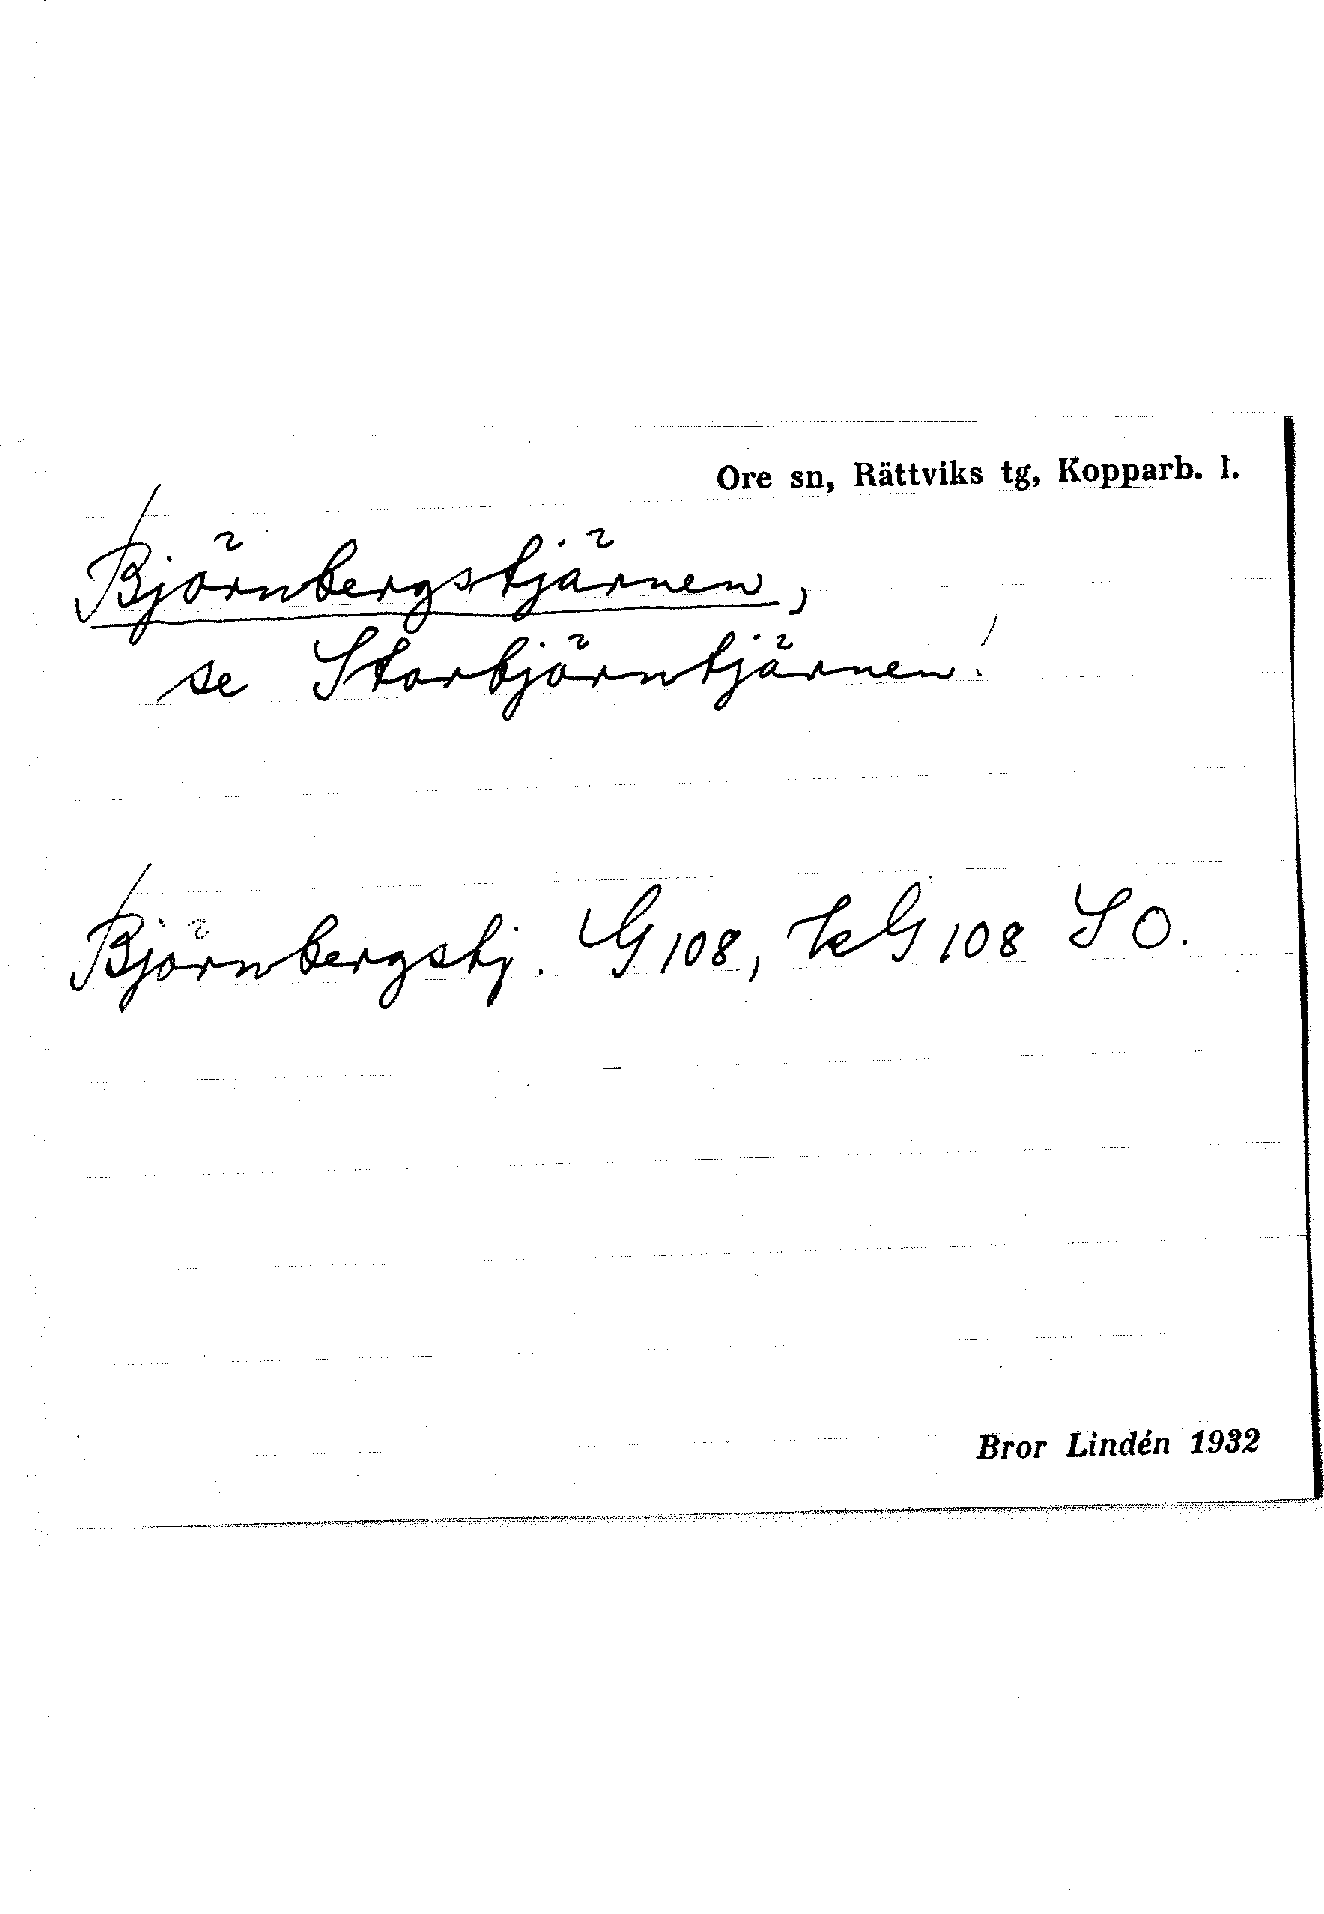 Ore sn, Rättviks tg, Kopparb. l.
Björnbergstjärnen,
se Storbjörntjärnen!
Björnbergstj. G 108, kG 108 SO.
Bror Lindén 1932